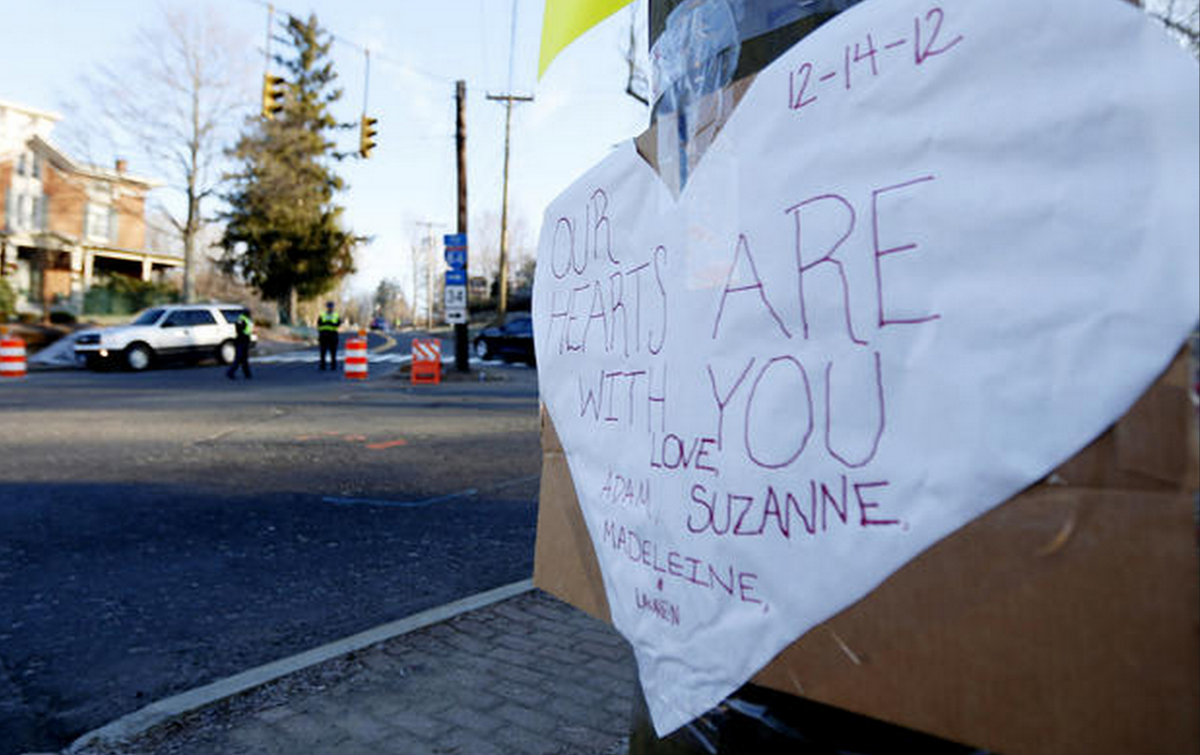 12-14-12
OUR
HEARTS ARE
WITH YOU
LOVE,
ADAM, SUZANNE,
MADELEINE,
&
LAUREN
84
34